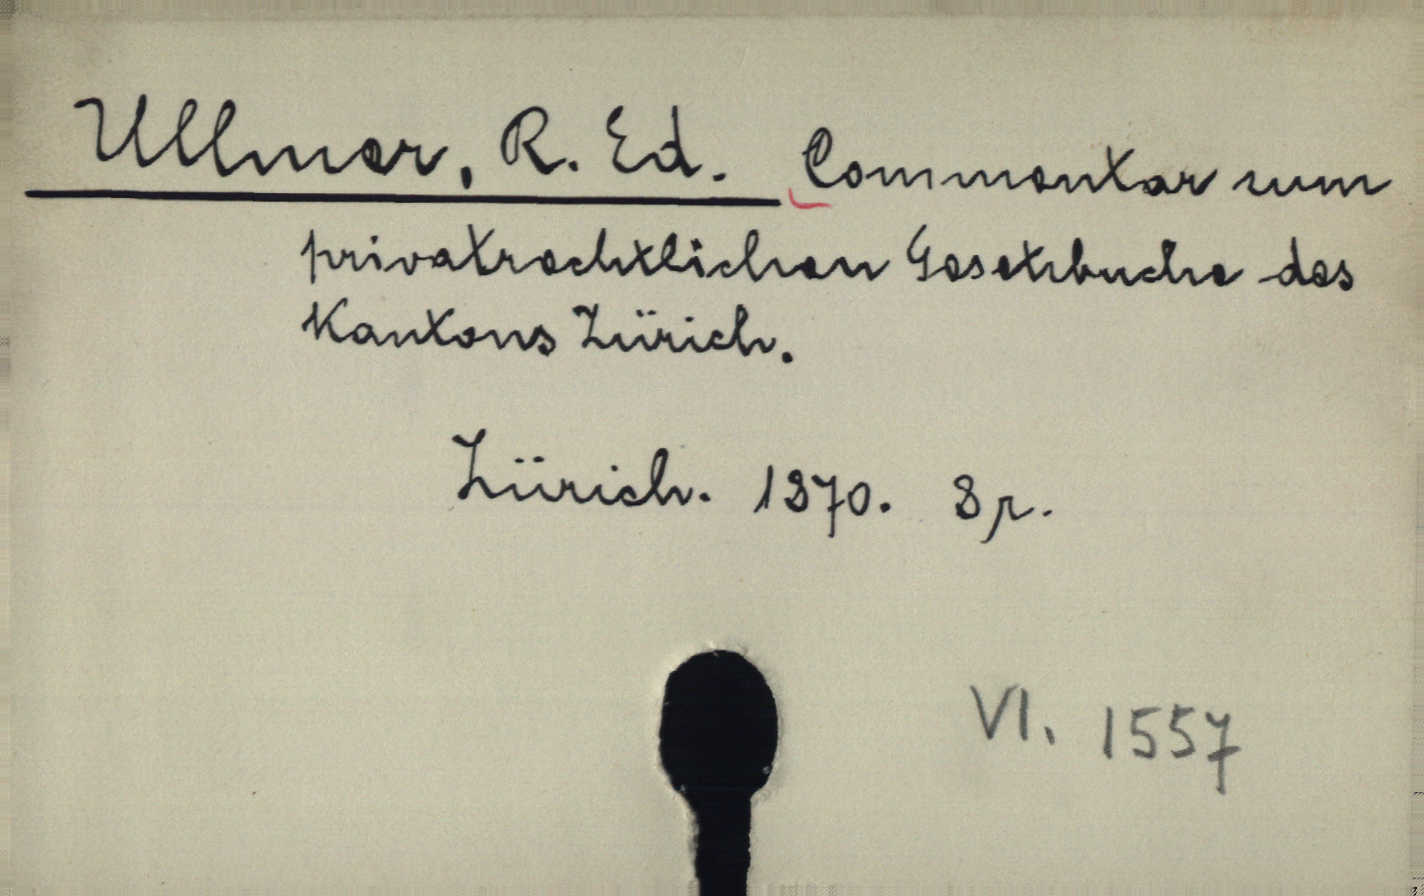 Ullmer, R. Ed. Commentar zum
privatrechtlichen Gesetzbuche des
Kantons Zürich.
Zürich. 1870. 8 r.
VI. 1557